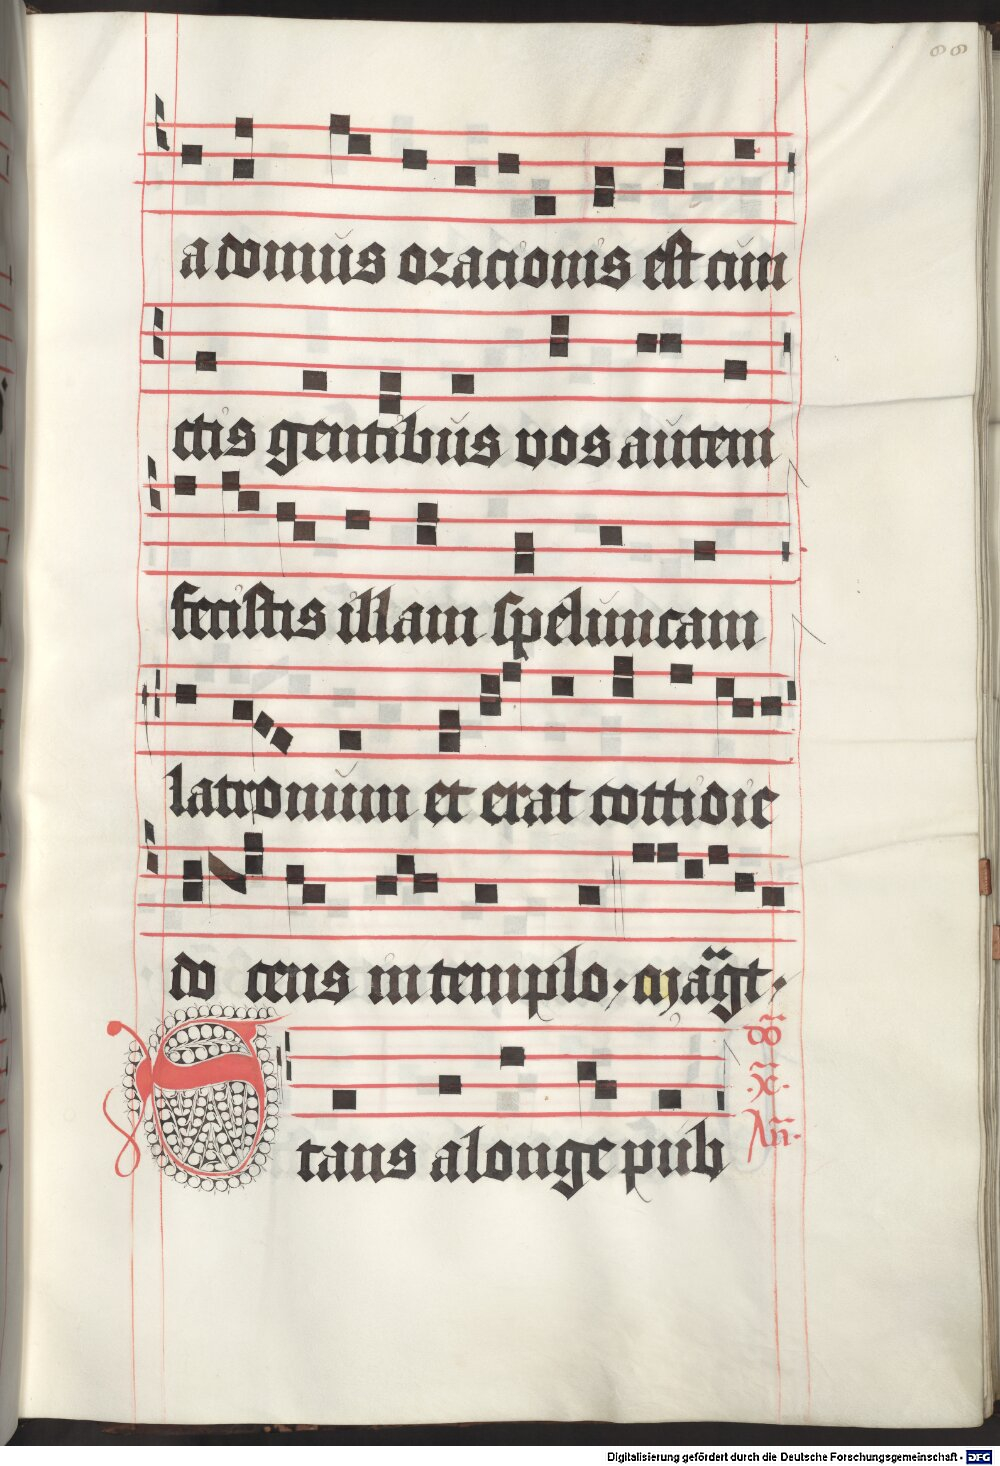 99
a domus oracionis est cun
ctis gentibus vos autem
fecistis illam speluncam
latronum et erat cottidie
do cens in templo · magt ·
Stans a longe pub
Digitalisierung gefördert durch die Deutsche Forschungsgemeinschaft · DFG